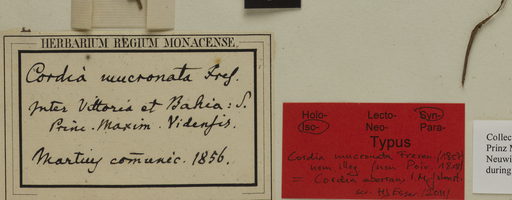 HERBARIUM REGIUM MONACENSE.
Cordia mucronata Fres.
Inter Vittoria et Bahia: S.
Princ. Maxim. Vidensis.
Martius comunic. 1856.
Holo- Lecto- Syn-
Iso- Neo- Para-
Typus
Cordia mucronata Fresen. (1857)
nom. illeg. (non Poir. 1818)
= Cordia aberrans I.M. Johnst.
Collec
Prinz M
Neuwi
during